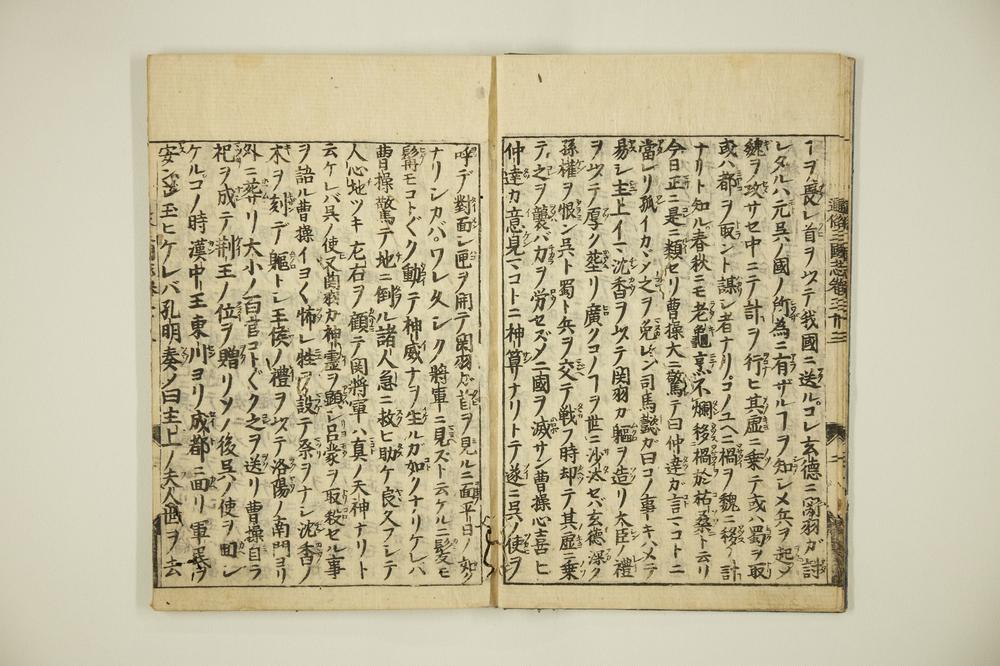 通俗三國志卷三十三
ヿヲ畏レ首ヲ以テ我國ニ送ルコレ玄德ニ關羽ガ討
レタルハ元呉ノ國ノ所為ニ有ザルヿヲ知シメ兵ヲ起メ
魏ヲ攻サセ中ニテ計ヲ行ヒ其虚ニ乗テ或ハ蜀ヲ取
或ハ都ヲ取ント謀シ者ナリコノユヘニ禍ヲ魏ニ移ス計
ナリト知ル春秋ニモ老龜烹不爛移禍於枯桑ト云リ
今日正ニ是ニ類セリ曹操大ニ驚テ曰仲達ガ言マコトニ
當レリ孤イカンメ之ヲ免レン司馬懿ガ曰コノ事キハメテ
易シ主上イマ沈香ヲ以テ関羽カ軀ヲ造リ大臣ノ禮
ヲ以テ厚ク葬リ廣クコノヿヲ世ニ沙汰セバ玄德深ク
孫權ヲ恨ン呉ト蜀ト兵ヲ交テ戦フ時却テ其虚ニ乗
テ之ヲ襲バ力ヲ労セズメ二國ヲ滅サン曹操心喜ヒ
仲達カ意見マコトニ神算ナリトテ遂ニ呉ノ使ヲ
呼デ對面シ匣ヲ開テ関羽ガ首ヲ見ルニ面平日ノ如ク
ナリシカバワレ久シク將軍ニ見ズト云ケルニ髪モ
鬚モコトゴトク動テ神威ナヲ生ルガ如クナリケレバ
曹操驚テ地ニ倒ル諸人急ニ救ヒ助ケ良久フシテ
人心地ツキ左右ヲ顧テ関將軍ハ真ノ天神ナリト
云ケレバ呉ノ使又関羽カ神霊ヲ顕シ呂蒙ヲ取殺セル事
ヲ語ル曹操イヨ〱怖レ牲ヲ設テ祭ヲナシ沈香ノ
木ヲ刻デ軀トシ王侯ノ禮ヲ以テ洛陽ノ南門ヨリ
外ニ葬リ大小ノ百官コトゴトク之ヲ送リ曹操自ラ
祀ヲ成テ荊王ノ位ヲ贈リソノ後呉ノ使ヲ囬シ
ケルコノ時漢中王東川ヨリ成都ニ囬リ軍民ヲ
安ンジ玉ヒケレバ孔明奏ノ曰主上ノ夫人世ヲ去